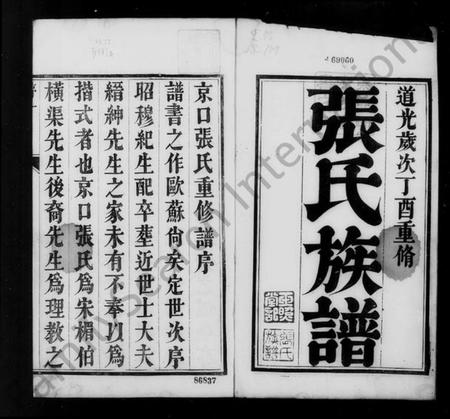 69060
道光歲次丁酉重脩
張氏族譜
張氏
族譜
京口張氏重修譜序
譜書之作歐蘇尚矣定世次序
昭穆紀生配卒塟近世士大夫
縉紳先生之家未有不奉以爲
揩式者也京口張氏爲宋楣伯
橫渠先生後裔先生爲理教之
86837